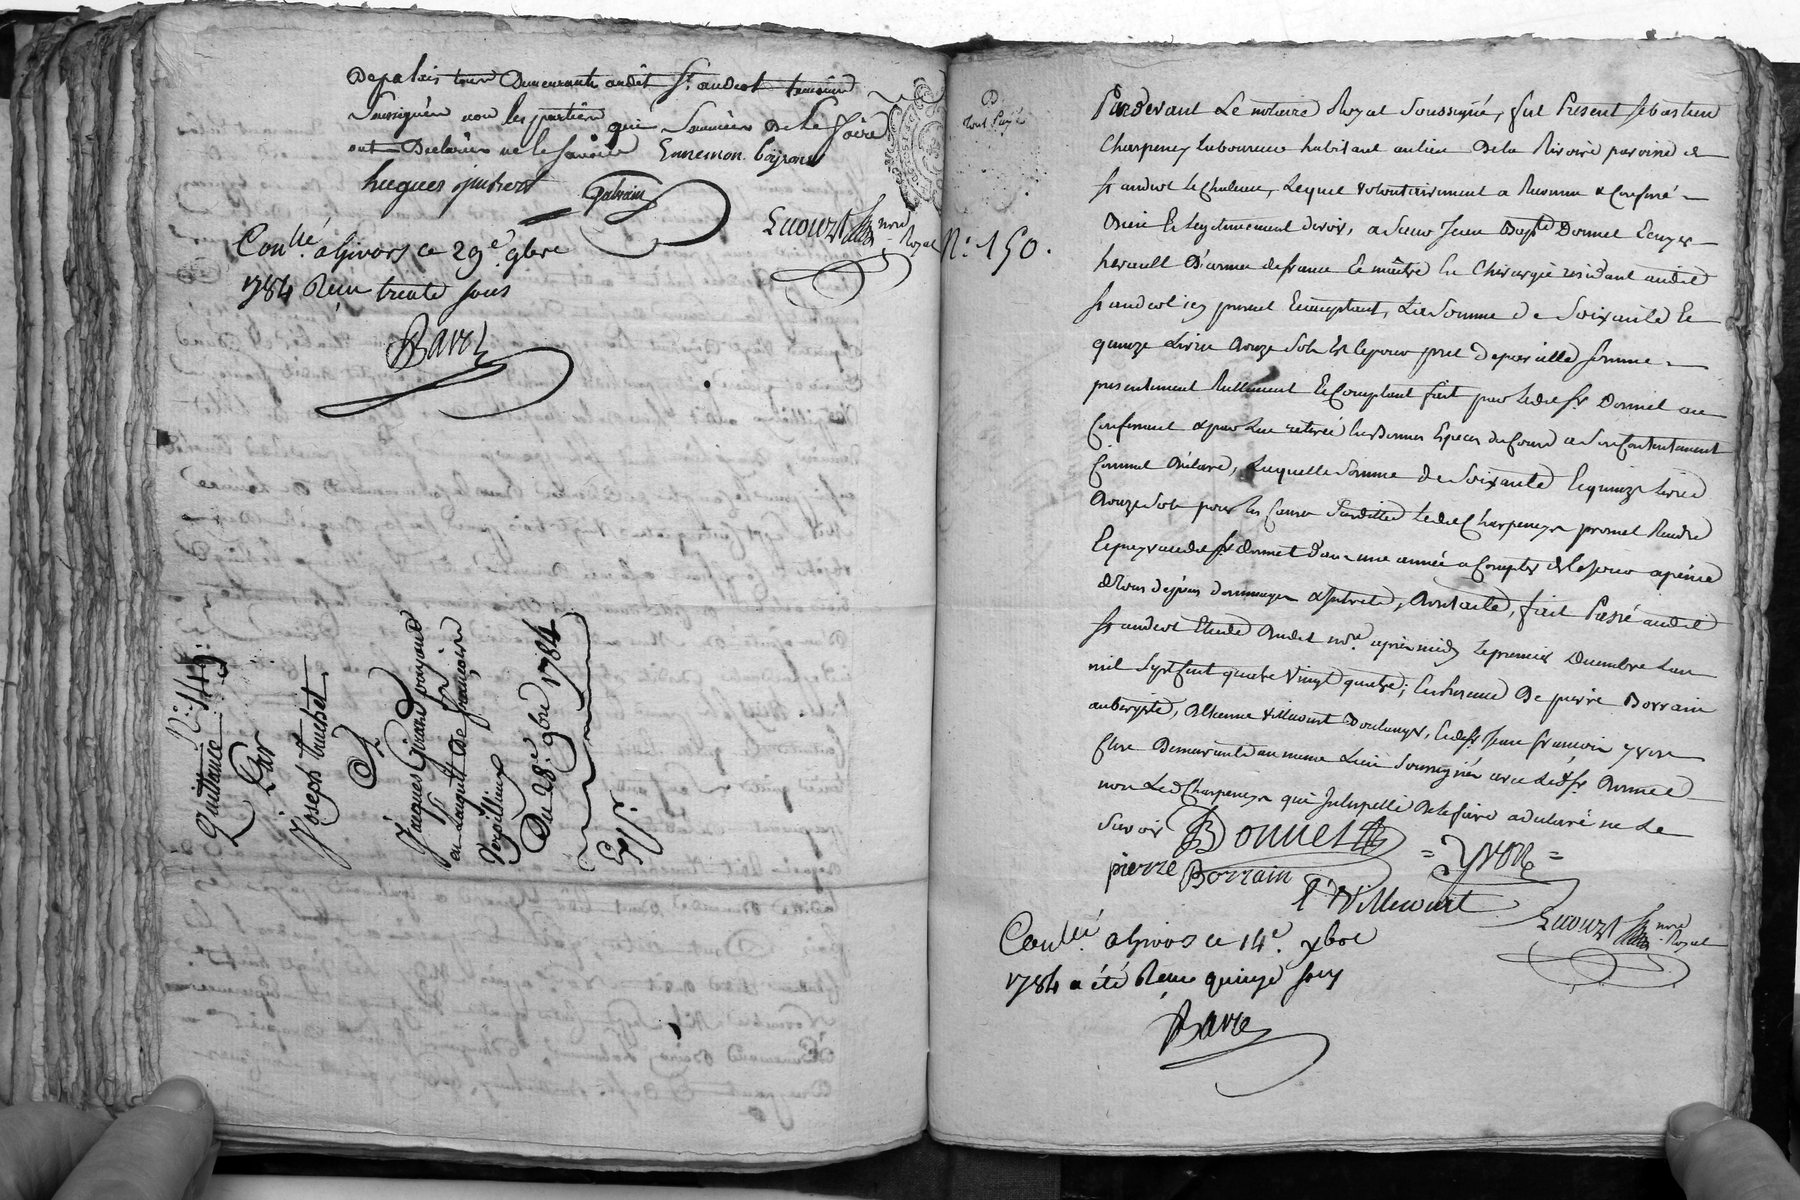 Depalais tous Demeurants audit St. andeol temoins
Soussignés non les parties qui Sommées De le faire
ont Declarées ne le Savoir Ennemon bajrond
hugues jmbert
Galvain
Lhouzt nore Royal
Conllé. a Givors ce 29e. 9bre
1784 Reçu trente sous
Barel
N: 149.
Quittance
Par
Joseph thuchet
A
Jacques Girard paysand
en Laquit De françoise
Verpillieux
Du 28.e 9bre 1784
Expe.
D
N: 150.
Pardevant Le notaire Royal Soussigné, fut Present Sebastien
Charpenay Laboureur habitant au lieu De la Rivoire paroisse de
St andeol le chateau, Lequel volontairement a Reconnu & Confessé
Devoir Legitimement devoir, a Sieur Jean Bapte Donnet Ecuyer
herault D'armes de france Et maitre En Chirurgie residant audit
St andeol icy present Et acceptant, La Somme de Soixante Et
quinze Livres Douze Sols Et ce pour pret De pareille Somme
presentement Reellement Et Comptant fait par Ledit Sr Donnet au
Confessant & par Lui retirée En Bonnes Especes du Cours a Son Contentement
Comme Déclare, Laquelle Somme de Soixante Et quinze Livres
Douze Sols pour les Causes Susdittes Ledit Charpenay promet Rendre
Et payer audit Sr Donnet D'ans une année a Compter de Ce jour a peine
de tous depens dommages & Interets, Dont acte, fait & Passé audit
St andeol Etude Dudit nore. après midy Le premier Decembre L'an
mil Sept Cent quatre Vingt quatre; En presence De pierre Borrain
aubergiste, Etienne Villecourt Boulanger, Et de Sr Jean françois yvon
Clerc Demeurants au meme Lieu Soussignés avec Ledit Sr Donnet
non Led Charpenay qui Interpellé De le faire a declaré ne Le
Savoir Donnet
= yvon =
pierre Borrain
E Villecourt
Lhouzt nore Royal
Conllé. a Givors ce 14e. xbre
1784 a été Reçu quinze sous
Barel